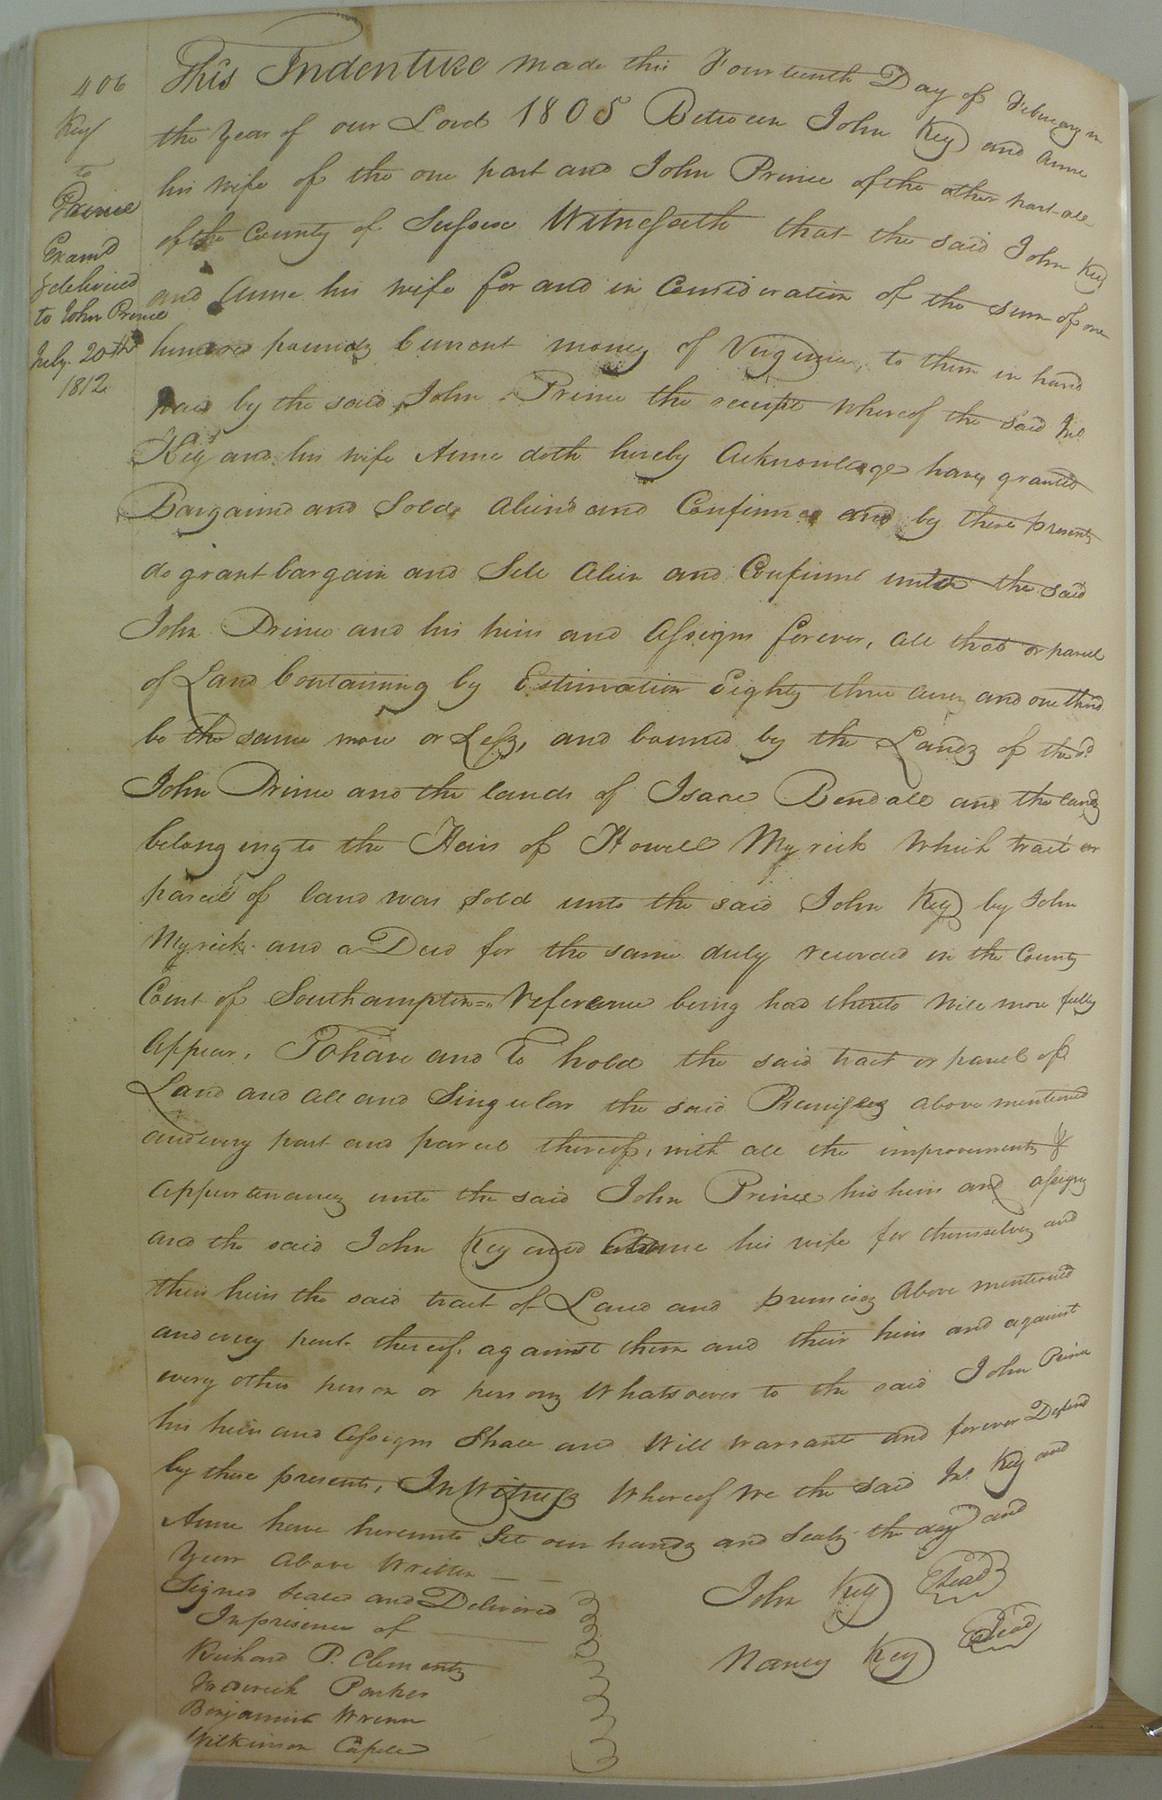 406
Key
to
Prince
Examd
& delivered
to John Prince
July 20th
1812
This Indenture made this Fourteenth Day of February in
the Year of our Lord 1805 Between John Key and Anne
his wife of the one part and John Prince of the other part all
of the County of Sussex Witnesseth that the said John Key
and Anne his wife for and in Consideration of the sum of one
hundred pounds Current money of Virginia, to them in hand
paid by the said John Prince the receipt whereof the said Jno.
Key and his wife Anne doth hereby Acknowledge have granted
Bargained and Sold Aliend and Confirmed and by these presents
do grant bargain and Sell Alien and Confirm unto the said
John Prince and his heirs and Assigns forever, all that or parcel
of Land Containing by Estimation Eighty three Acres and one third
be the same more or Less, and bound by the Lands of the sd
John Prince and the lands of Isaac Bendall and the lands
belonging to the Heirs of Howell Myrick Which tract or
parcel of land was Sold unto the said John Key by John
Myrick and a Deed for the same duly recorded in the County
Court of Southampton = Reference being had thereto will more fully
Appear. To have and To hold the said tract or parcel of
Land and all and Singular the said Premisses above mentioned
and every part and parcel thereof, with all the improvements &
Appurtenances unto the said John Prince his heirs and assigns
and the said John Key and Anne his wife for themselves and
their heirs the said tract of Land and premises Above mentioned
and every part thereof, against them and their heirs and against
every other person or persons Whatsoever to the said John Prince
his heirs and Assigns Shall and Will warrant and forever Defend
by these presents, In Witness Whereof We the said Jno. Key and
Anne have hereunto Set our hands and Seals the day and
Year Above Written
Signed Sealed and Delivered
In presence of
Richard P. Clements
Frederick Parker
Benjamin Wrenn
Wilkinson Capell
John Key Seal
Nancy Key Seal